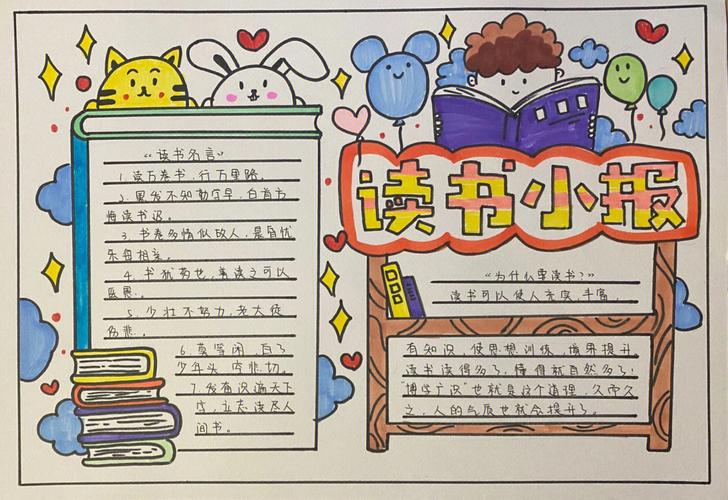 “读书名言”
1. 读万卷书，行万里路。
2. 黑发不知勤学早，白首方
悔读书迟。
3. 书卷多情似故人，晨昏忧
乐每相亲。
4. 书犹药也，善读之可以
医愚。
5. 少壮不努力，老大徒
伤悲。
6. 莫等闲，白了
少年头，空悲切。
7. 发奋识遍天下
字，立志读尽人
间书。
读书小报
“为什么要读书？”
读书可以使人充实，丰富，
有知识，使思想训练，境界提升
读书读得多了，懂得就自然多了；
“博学广识”也就是这个道理，久而久
之，人的气质也就会提升了。